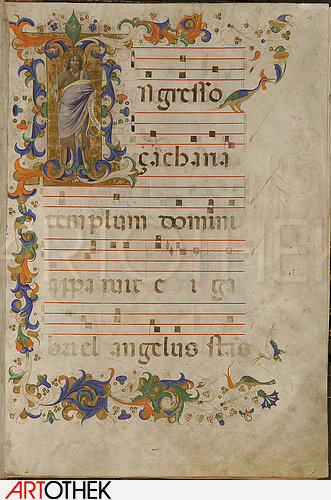 I
ngresso
çacharia
templum domini
apparuit ei ga
briel angelus stās
ARTOTHEK
ARTOTHEK